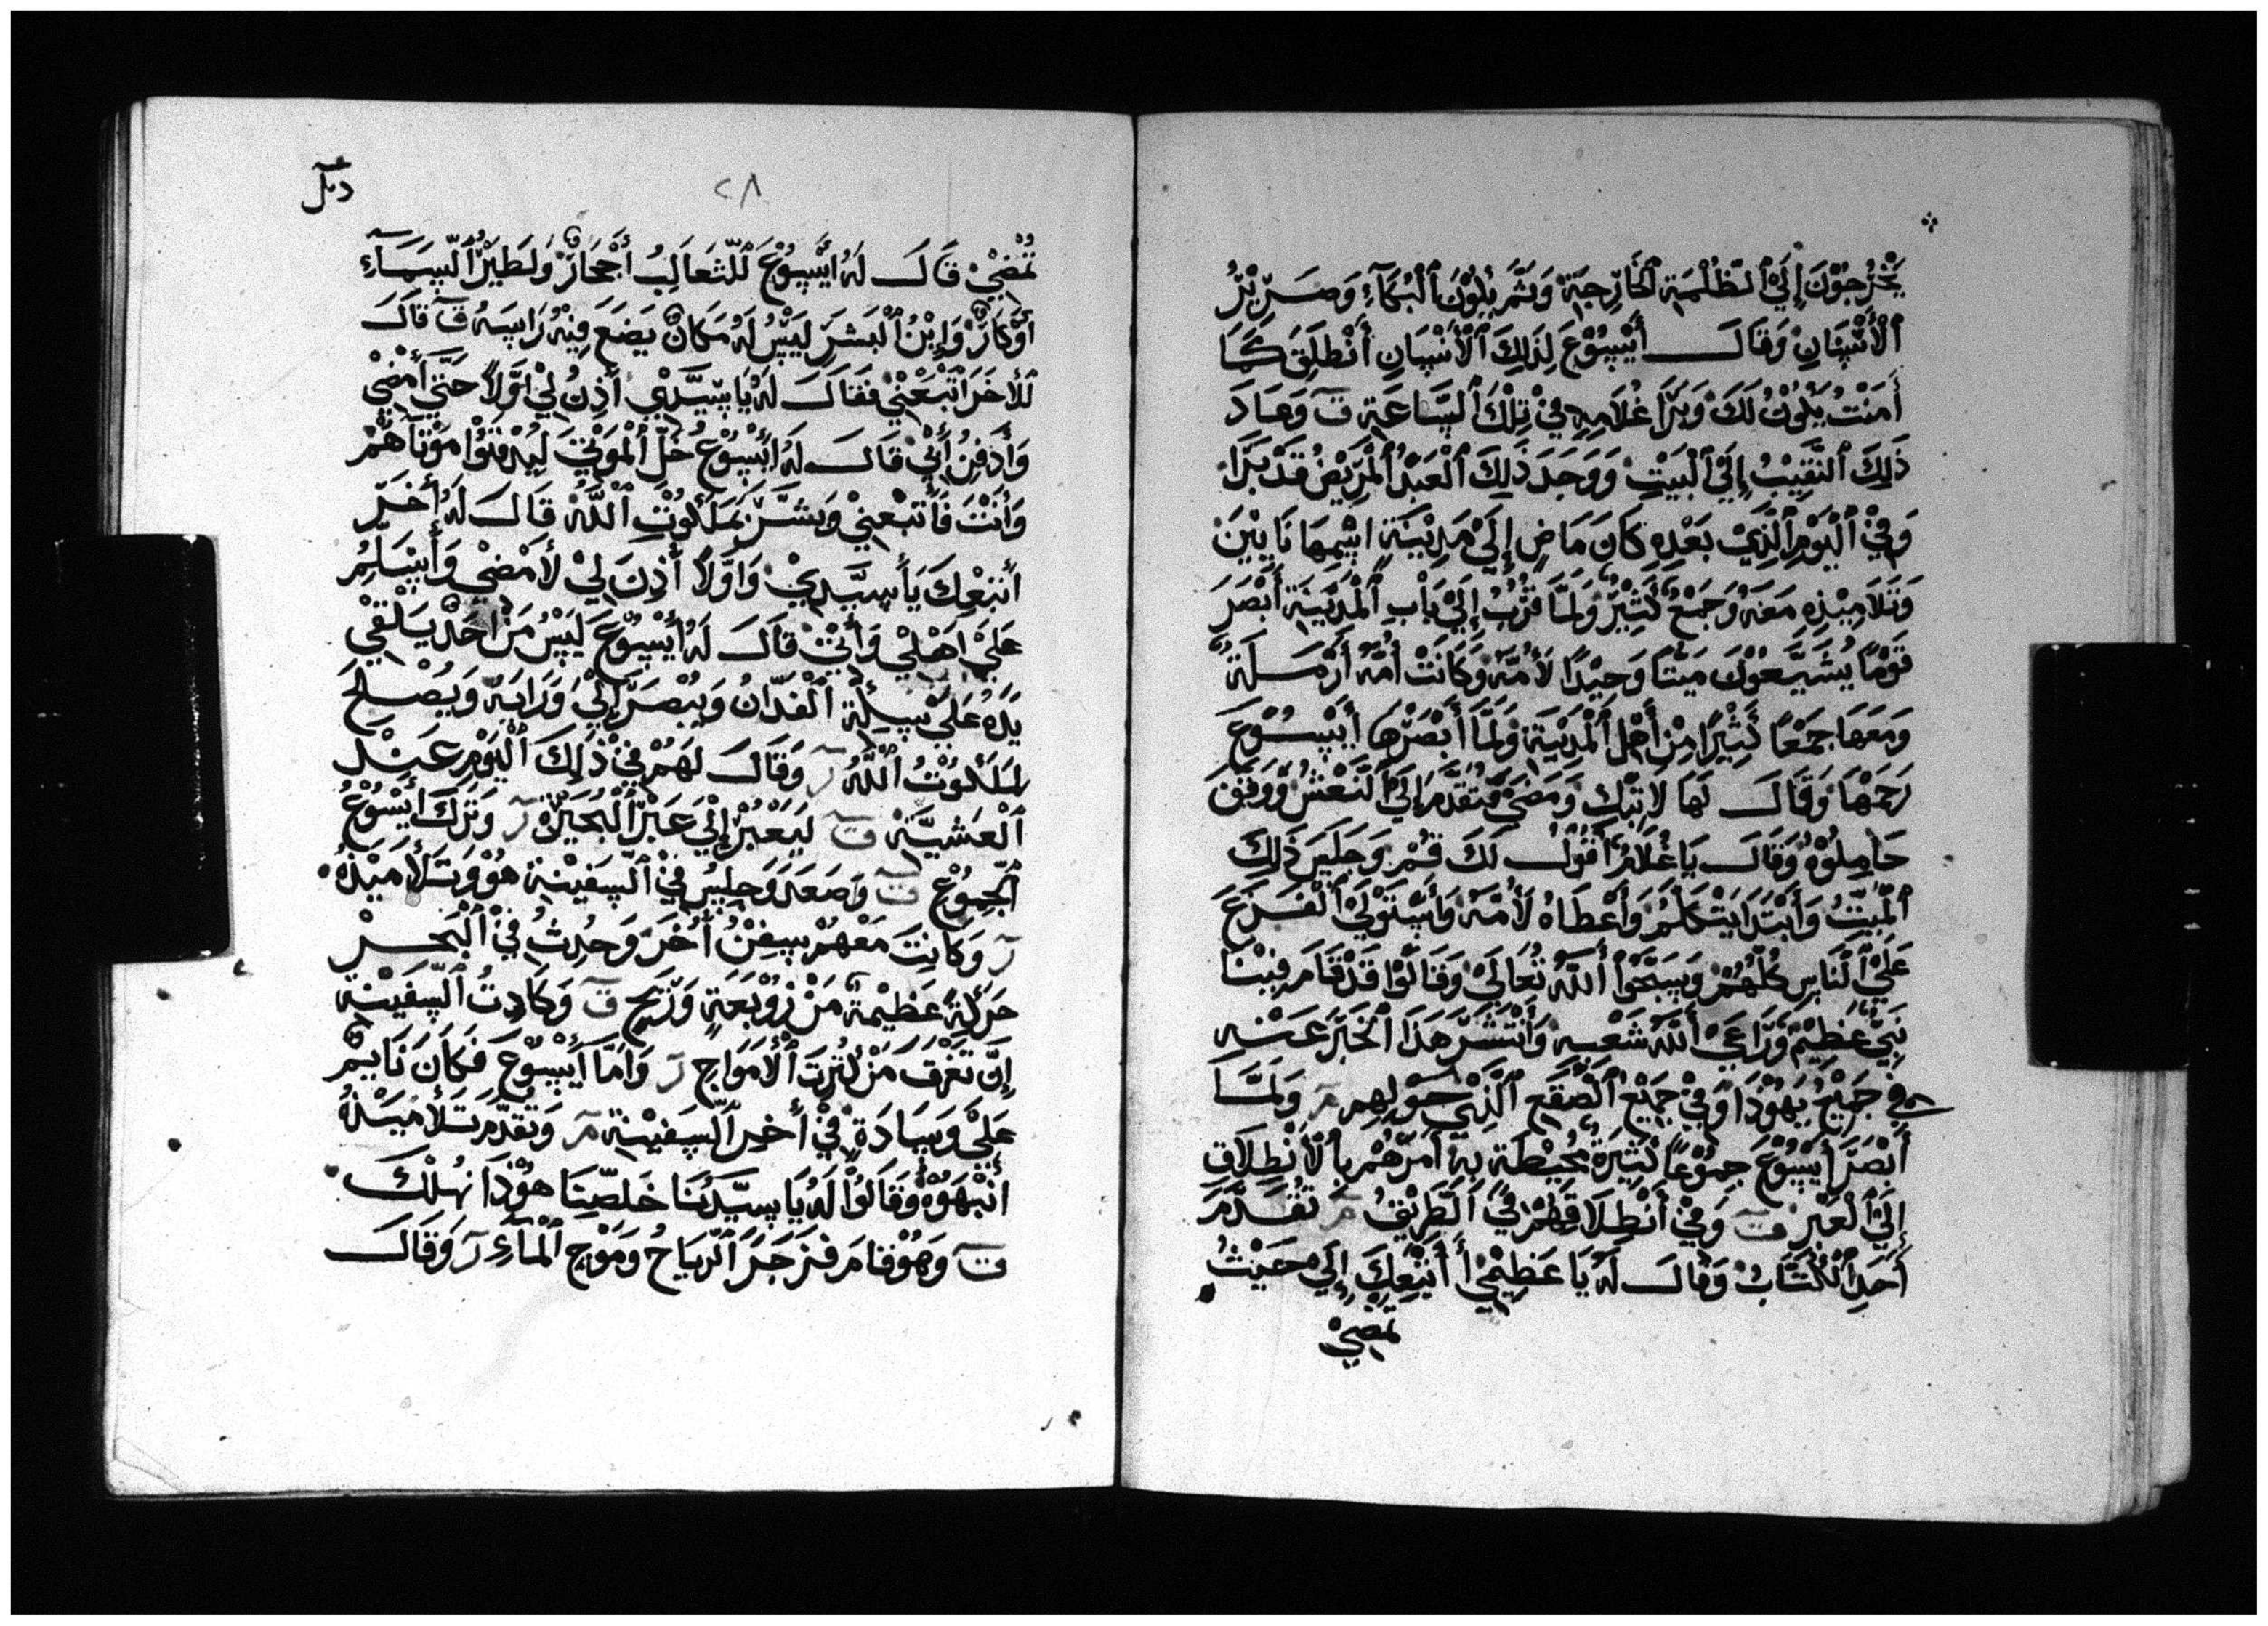 يَخْرُجُوْنَ إِلَيْ ٱلظُّلْمَةِ ٱلخَارِجِيَّةْ وَثَمَّ يَكُوْنُ ٱلْبُكَآءِ وَصَرِيْرُ
ٱلْأَسْنَانِ وَقَالَ أَيْسُوْعَ لِذَلِكَ ٱلْأَنْسَانِ أَنْطَلِقْ كَمَا
أَمَنْتَ يَكُوْنُ لَكَ وَبَرَّا غُلَامِهِ فِيْ تِلْكَ ٱلسَّاعَةِ ت وَعَادَ
ذَلِكَ ٱلنَّقِيْبُ إِلَيْ ٱلْبَيْتِ وَوَجَدَ ذَلِكَ ٱلْعَبْدُ ٱلْمَرِيْضُ قَدْ بَرَاءَ
وَفِيْ ٱلْيَوْمِ ٱلَّذِيْ بَعْدِهِ كَانَ مَاضٍ إِلَيْ مَدِيْنَةٍ اسْمِهَا نَايِيْنَ
وَتَلَامِيْذِهِ مَعَهُ وَجَمْعٌ كَثِيْرٌ وَلَمَّا قَرُبَ إِلَيْ بَابِ ٱلْمَدِيْنَةِ أَبْصَرَ
قَوْمًا يُشَيِّعُوْنَ مَيْتًا وَحِيْدًا لِأُمِّهِ وَكَانَتْ أُمَّهُ أَرْمَلَةً
وَمَعَهَا جَمْعًا كَثِيْرًا مِنْ أَهْلِ ٱلْمَدِيْنَةِ وَلَمَّا أَبْصَرَهَا أَيْسُوْعَ
رَحَمْهَا وَقَالَ لَهَا لَا تَبْكِ وَمَضَيْ فَتَقَدَّمَ إِلَيْ ٱلنَّعْشِ وَوَقِفَ
حَامِلُوْهُ وَقَالَ يَا غُلَامُ أَقُوْلُ لَكَ قُمْ وَجَلِسَ ذَلِكَ
ٱلْمَيِّتُ وَأَبْتَدَا يَتْكَلَّمُ وَأَعْطَاهُ لِأُمِّهِ وَأَسْتَوْلَيْ ٱلْفَزَعَ
عَلَيْ ٱلْنَاسِ كُلُّهُمْ وَسَبَّحَوْا أَللَّهُ تَعَالَيْ وَقَالُوْا قَدْ قَامَ فِيْنَا
نَبِيٌّ عَظِيْمٌ وَرَّاعَيْ أَللَّهُ شَعْبِهِ وَأَنْتَشَرَ هَذَا ٱلْخَبَرَ عَنْهِ
فِيْ جَمِيْعِ يَهُوْذَا وَفِيْ جَمِيْعِ ٱلْصُقْعِ ٱلَّذِيْ حَوْلِهِمِ مر وَلَمَّا
أَبْصَرَ أَيْسُوْعَ جَمُوْعًا كَثِيْرَةٌ مُحِيْطَةٌ بِهِ أَمَرَهُمْ بِأَلْأَنْطِلَاقِ
إِلَيْ ٱلْعَبْرِ ت وَفِيْ أَنْطِلَاقِهِمْ فِيْ ٱلْطَرِيْقُ مر تَقَدَّمَ
أَحَدِ ٱلْكُتَّابُ وَقَالَ لَهُ يَا عَظِيْمِيْ أَتْبَعِكَ إِلَيْ حَيْثُ
تَمْضِيْ
٢٨
تَمْضِيْ قَالَ لَهُ أَيْسُوْعَ لِلْثَعَالِبُ أَجْحَارٌ وَلِطَيْرِ ٱلسَّمَآءِ
أَوْكَارٌ وَإِبْنُ ٱلْبَشَرِ لَيْسُ لَهُ مَكَانٌ يَضَعَ فِيْهِ رَاسِهُ ت قَالَ
لِلأَخَرَ اتْبَعْنِيْ فَقَالَ لَهُ يَا سَيِّدِيْ أَذِنُ لِيْ اوَّلاً حَتَّيْ أَمْضِيْ
وَأَدْفِنُ أَبِيْ قَالَ لَهُ أَيْسُوْعُ خَلِّ ٱلْمَوْتَيَ لِيَدْفِنُوْا مَوْتَاهُمْ
وَأَنْتَ فَأَتْبَعْنِيْ وَبَشِّرْ بِمَلَكُوْتِ ٱللَّهُ قَالَ لَهُ أَخَرُ
أَتْبَعْكَ يَا سَيِّدِيْ وَاوَّلاً أَذِنَ لِيْ لأَمْضِيْ وَأُسَلِّمُ
عَلَيْ اهْلِيْ وَأَتِيْ قَالَ لَهُ أَيْسُوْعَ لَيْسُ مَنْ احَدٌ يَلْقِيْ
يَدَهُ عَلَيْ سِكَّةِ ٱلْفَدَّانُ وَيَبْصَرَ إِلَيْ وَرَايِهْ وَيُصْلِحَ
لِمَلَكُوْتُ ٱللَّهُ ر وَقَالَ لَهُمْ فِيْ ذَلِكَ ٱلْيَوْمِ عِنْدَ
ٱلْعَشِيَّةْ ت لِيَعْبَرْ إِلَيْ عَبْرِ ٱلْبُحَيْرَةْ ر وَتَرَكَ أَيْسُوْعُ
ٱلْجُمُوْعِ ت وَصَعَدَ وَجِلِسُ فِيْ ٱلسَّفِيْنَةِ هُوْ وَتَلَأمِيْذَهُ
ر وَكَانِتَ مَعْهُمْ سِفِنْ أُخَرَ وَحُدِثُ فِيْ ٱلْبَحْرِ
حَرَكَةٌ عَظِيْمَةٌ مَنْ زَوْبَعَةٍ وَرِيْحٍ ت وَكَادِتُ ٱلسَّفِيْنَةُ
إِنَّ تَغْرَقَ مَنْ كَثِرِتَ ٱلْأَمْوَاجِ ر وَامَّا أَيْسُوْعَ فَكَانَ نَايِمٌ
عَلَيْ وَسَادَةٍ فِيْ أَخِرِ ٱلْسَفِيْنَةِ مر وَتَقَدَّمَ تَلأَمِيْذَهُ
أَنْبَهَوْهُ وَقَالُوْا لَهُ يَا سِيِّدَنَا خَلِّصْنَا هُوْذَا نَهْلُكَ
ت وَهُوْ قَامَ فَزَجَرَ ٱلْرِيَاحُ وَمَوْجِ ٱلْمَآءِ ر وَقَالَ